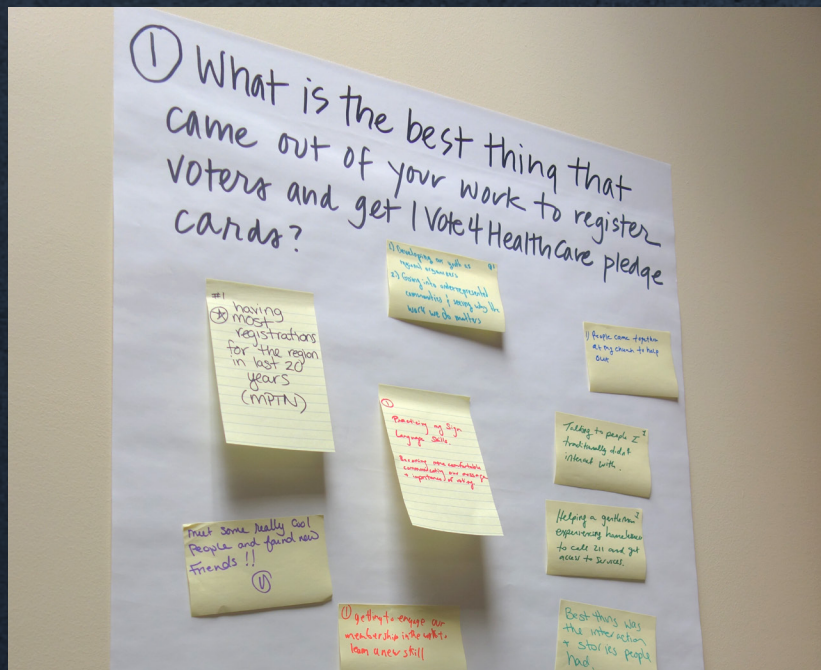 ① What is the best thing that
came out of your work to register
voters and get I Vote 4 HealthCare pledge
cards?
#1
having
most
registrations
for the region
in last 20
years
(MPTN)
1) Developing our as
regional organizers
2) Going into underrepresented
communities & seeing why the
work we do matters
1) People came together
at my church to help
out
①
Practicing my Sign
Language Skills.
Becoming more comfortable
communicating our message
+ importance of voting
Talking to people I
traditionally didn't
interact with.
Helping a gentleman
experiencing homelessness
to call 211 and get
access to Services.
met some really cool
People and found new
Friends !!
① getting to engage our
membership in the
learn a new skill
Best thing was
the interaction
+ stories people
had.